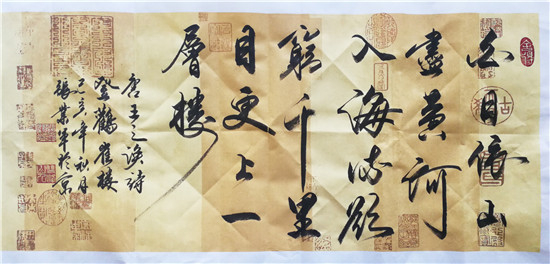 白日依山
盡黄河
入海流欲
窮千里
目更上一
層楼
唐王之渙詩
登鸛雀楼
己亥年秋月
張業軍於京